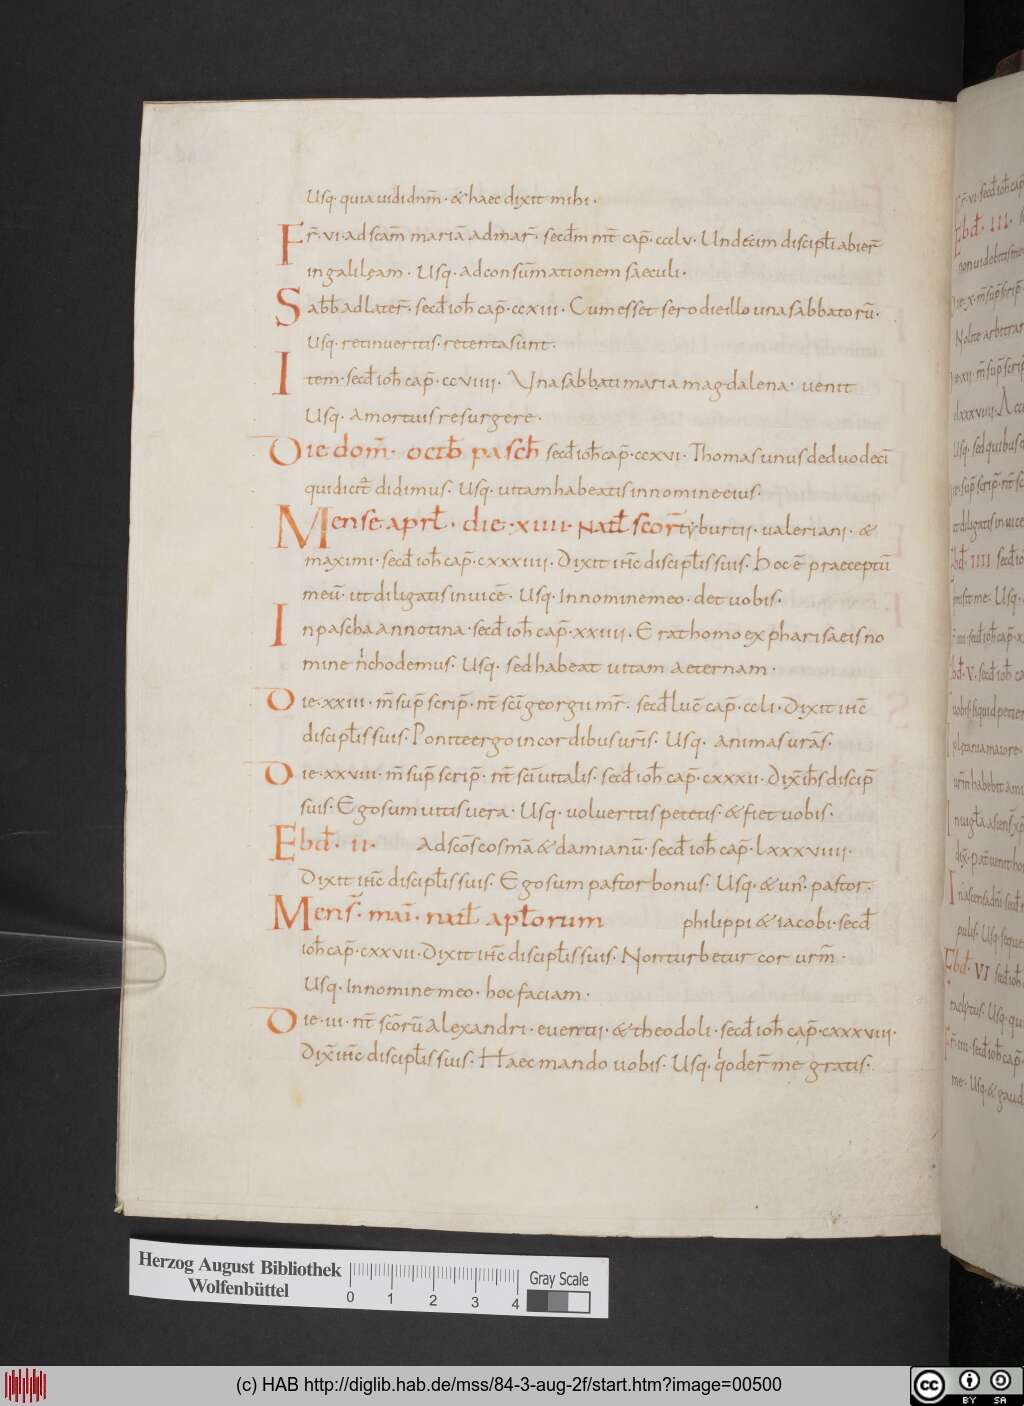 Usq· quia uidi dn̄m· & haec dixit mihi·
Fr̄·vi·ad sc̄am mariā ad mar̄· secd̄m mt̄ cap̄·ccclv· Undecim discipl̄i abier̄
in galileam· Usq· ad consūmationem saeculi·
Sabb̄ ad later̄· secd̄ ioh̄ cap̄·ccxiii· Cum esset sero die illo una sabbatorū·
Usq· retinueritis· retenta sunt·
Item· secd̄ ioh̄ cap̄·ccviiii· Una sabbati maria magdalena· uenit
Usq· a mortuis resurgere·
Die dom̄· octb̄ pasch̄ secd̄ ioh̄ cap̄·ccxvi· Thomas unus de duodeci
qui dicit̄ didimus· Usq· uitam habeatis in nomine eius·
Mense aprl̄· die·xiiii· natl̄ scor̄ tyburtii· ualeriani· &
maximi· secd̄ ioh̄ cap̄·cxxxiiii· Dixit ih̄c discipl̄is suis· Hoc ē praeceptū
meū· ut diligatis inuicē· Usq· In nomine meo· det uobis·
In pascha annotina· secd̄ ioh̄ cap̄·xxiiii· Erat homo ex pharisaeis no
mine nichodemus· Usq· sed habeat uitam aeternam·
Die·xxiii· m̄ sup̄ scrip̄· nt̄ sc̄i georgii mr̄· secd̄ luc̄ cap̄·ccli· Dixit ih̄c
discipl̄is suis· Ponite ergo in cordibus ur̄is· Usq· animas urās·
Die·xxviii· m̄ sup̄ scrip̄· nt̄ sc̄i uitalis· secd̄ ioh̄ cap̄·cxxxii· Dix̄ ih̄s discip̄
suis· Ego sum uitis uera· Usq· uolueritis petetis· & fiet uobis·
Ebd̄· ii· Ad sc̄os cosmā & damianū· secd̄ ioh̄ cap̄·lxxxviiii·
Dixit ih̄c discipl̄is suis· Ego sum pastor bonus· Usq· & un'· pastor·
Mens̄· mai· natl̄ apl̄orum philippi & iacobi· secd̄
ioh̄ cap̄·cxxvii· Dixit ih̄c discipl̄is suis· Non turbetur cor ur̄m·
Usq· In nomine meo· hoc faciam·
Die·iii· nt̄ sc̄orū Alexandri· euentii· & theodoli· secd̄ ioh̄ cap̄·cxxxviii·
Dix̄ ih̄c discipl̄is suis· Haec mando uobis· Usq· q̇ oder̄ me gratis·
Herzog August Bibliothek
Wolfenbüttel
0 1 2 3 4
Gray Scale
(c) HAB http://diglib.hab.de/mss/84-3-aug-2f/start.htm?image=00500
cc BY SA